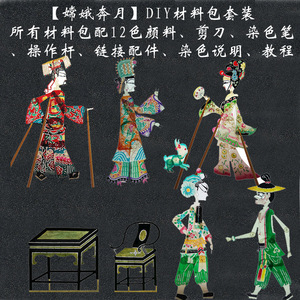 【嫦娥奔月】DIY材料包套装
所有材料包配12色顔料、剪刀、染色笔
、操作杆、链接配件、染色说明、教程